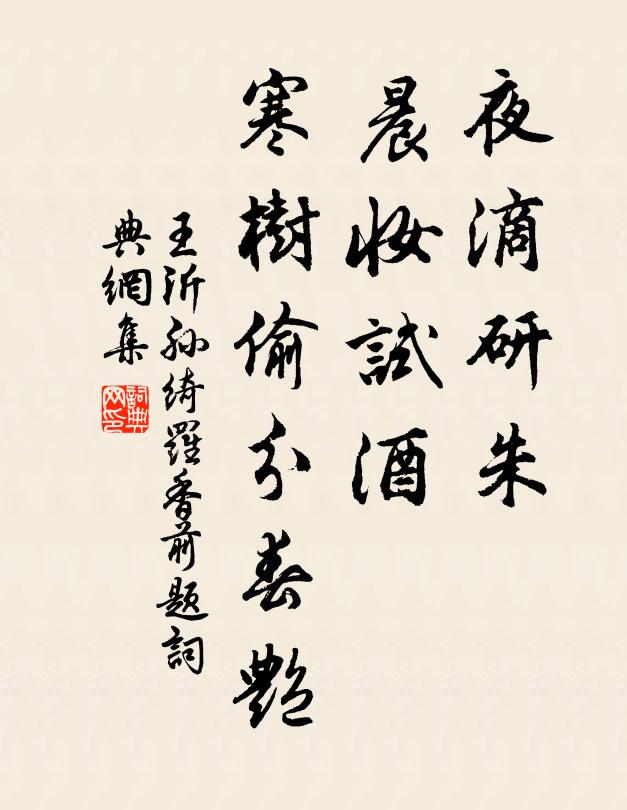 夜滴研朱
晨妝試酒
寒樹偷分春艷
王沂孙綺羅香前题詞
典網集
詞典网印